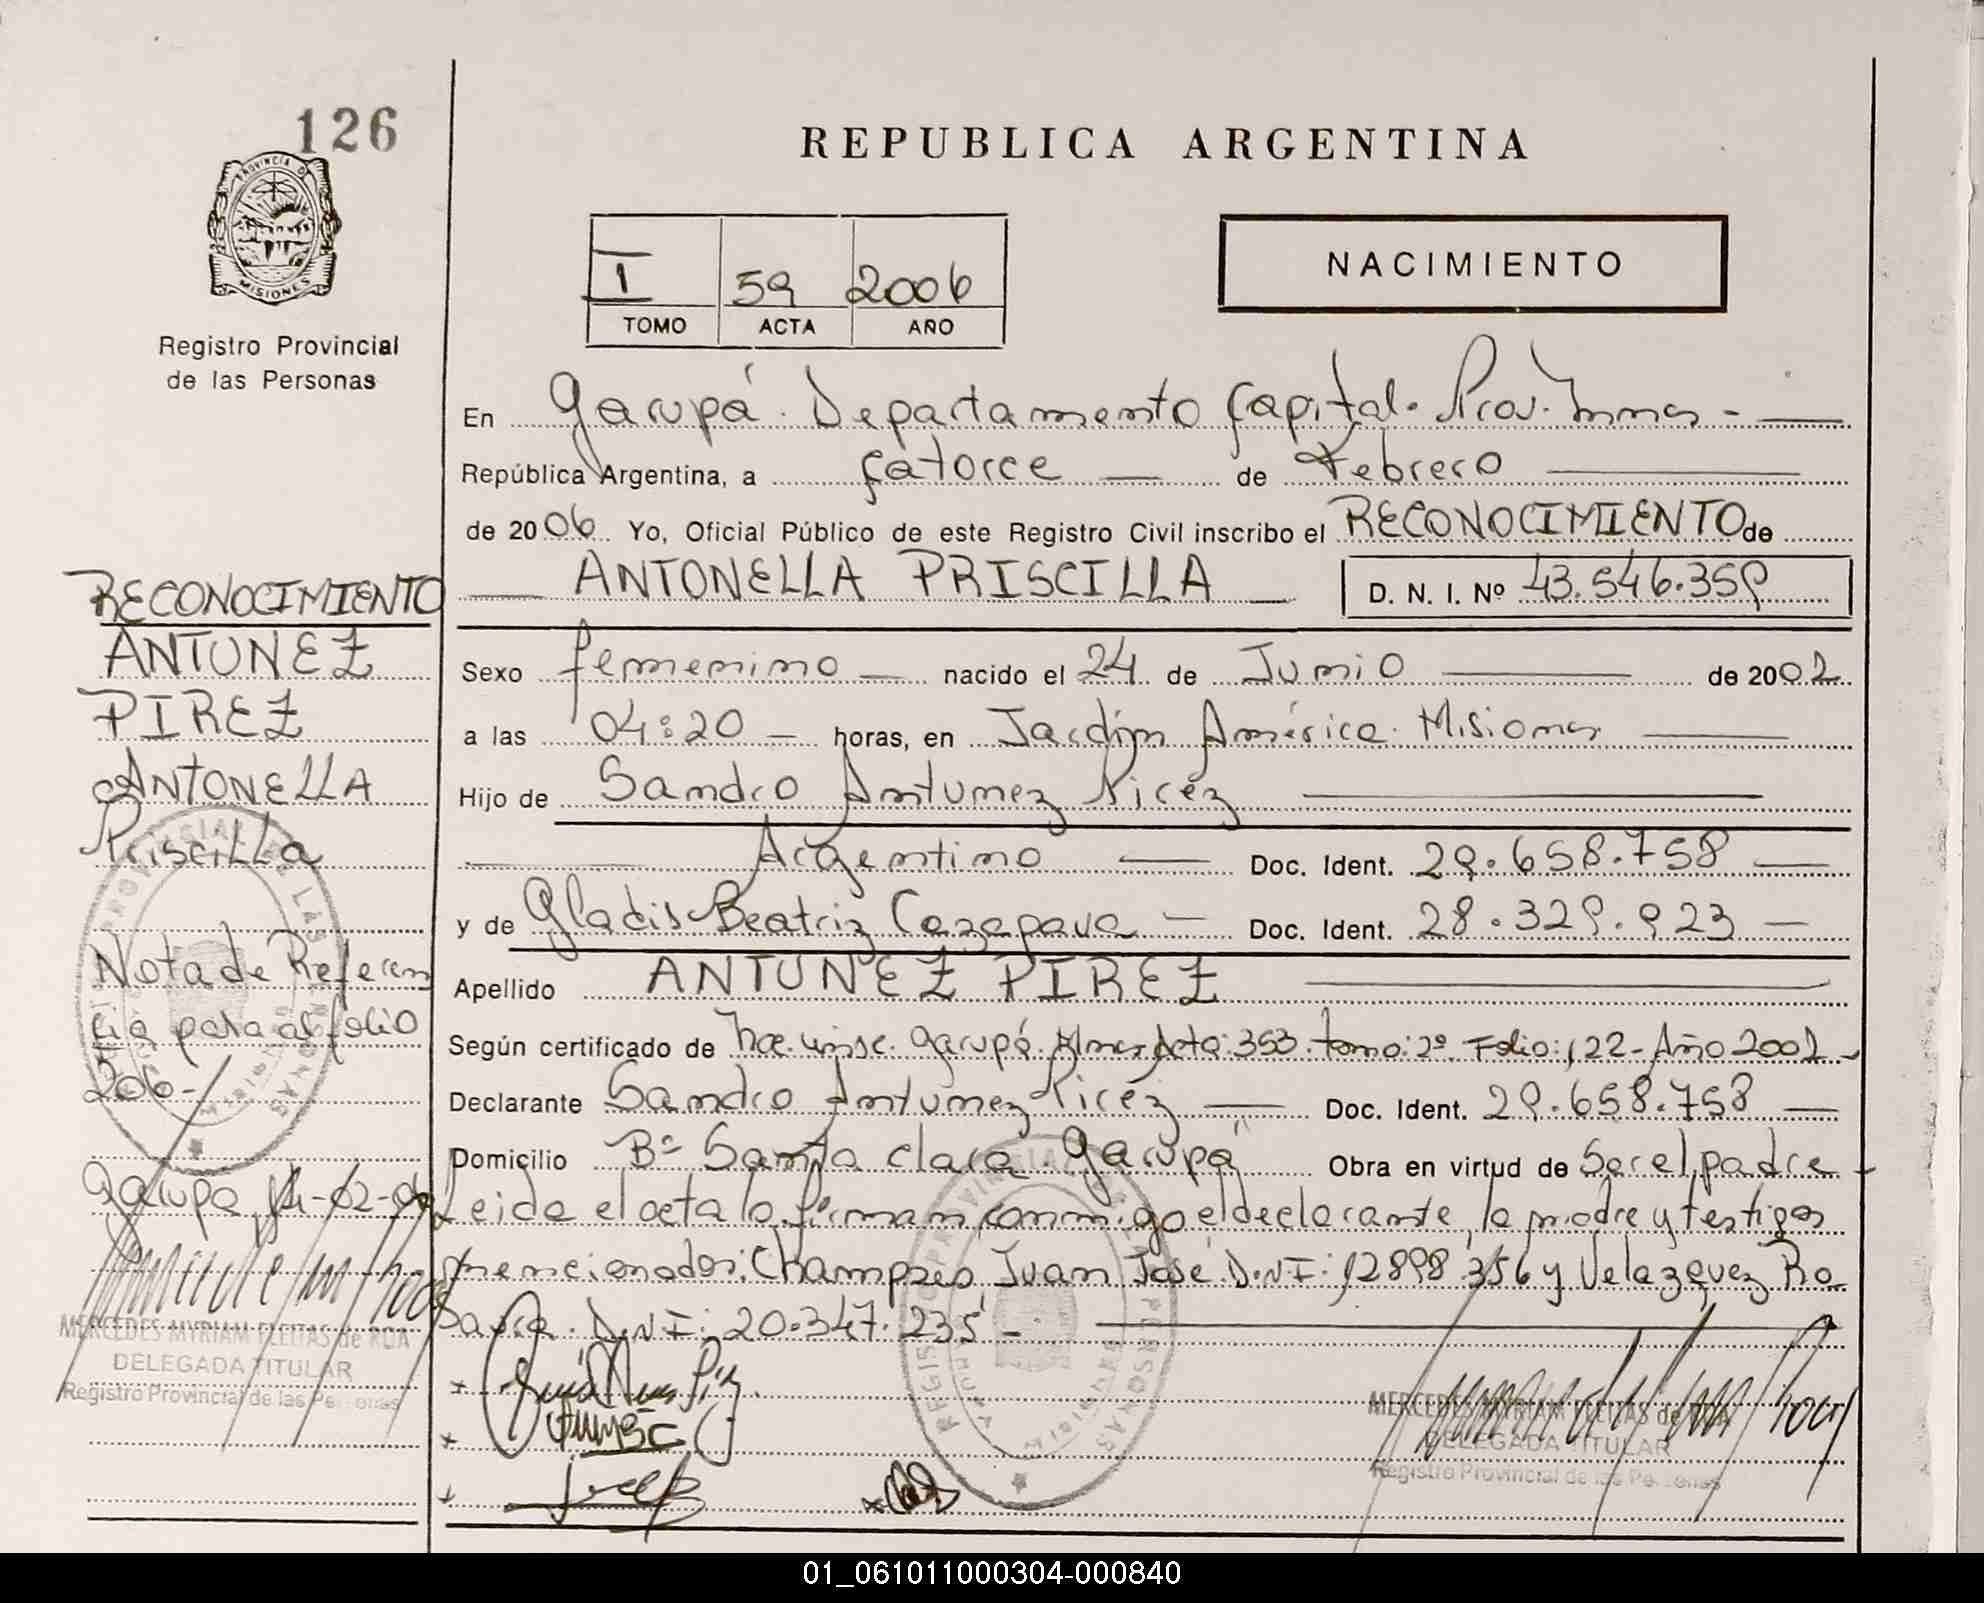 126
PROVINCIA DE
MISIONES
Registro Provincial
de las Personas
REPUBLICA ARGENTINA
I 59 2006
TOMO ACTA AÑO
NACIMIENTO
En Garupá. Departamento Capital. Prov. Mnes -
República Argentina, a Catorce de Febrero
de 2006 Yo, Oficial Público de este Registro Civil inscribo el RECONOCIMIENTO de
ANTONELLA PRISCILLA D. N. I. Nº 43.546.359
Sexo femenino nacido el 24 de Junio de 2002
a las 04:20 horas, en Jardín América. Misiones
Hijo de Sandro Antunez Pirez
Argentino Doc. Ident. 29.658.758
y de Gladis Beatriz Cazapava Doc. Ident. 28.329.923
Apellido ANTUNEZ PIREZ
Según certificado de Nac. insc. Garupá. Mnes Acta: 353. tomo: 2º. Folio: 122 - Año 2002
Declarante Sandro Antunez Pirez Doc. Ident. 29.658.758
Domicilio Bº Santa Clara. Garupá Obra en virtud de Ser el padre
Leida el acta la firman conmigo el declarante, la madre y testigos
mencionados: Juan José D.N.I: 12898.356 y Velazquez Ro
D.N.I: 20.347.235
RECONOCIMIENTO
ANTUNEZ
PIREZ
ANTONELLA
Priscilla
Nota de Referen
cia para al folio
206-
Garupa, 14-02-06
MERCEDES MYRIAM FLEITAS de ROA
DELEGADA TITULAR
Registro Provincial de las Personas
MERCEDES MYRIAM FLEITAS de ROA
DELEGADA TITULAR
Registro Provincial de las Personas
01_061011000304-000840